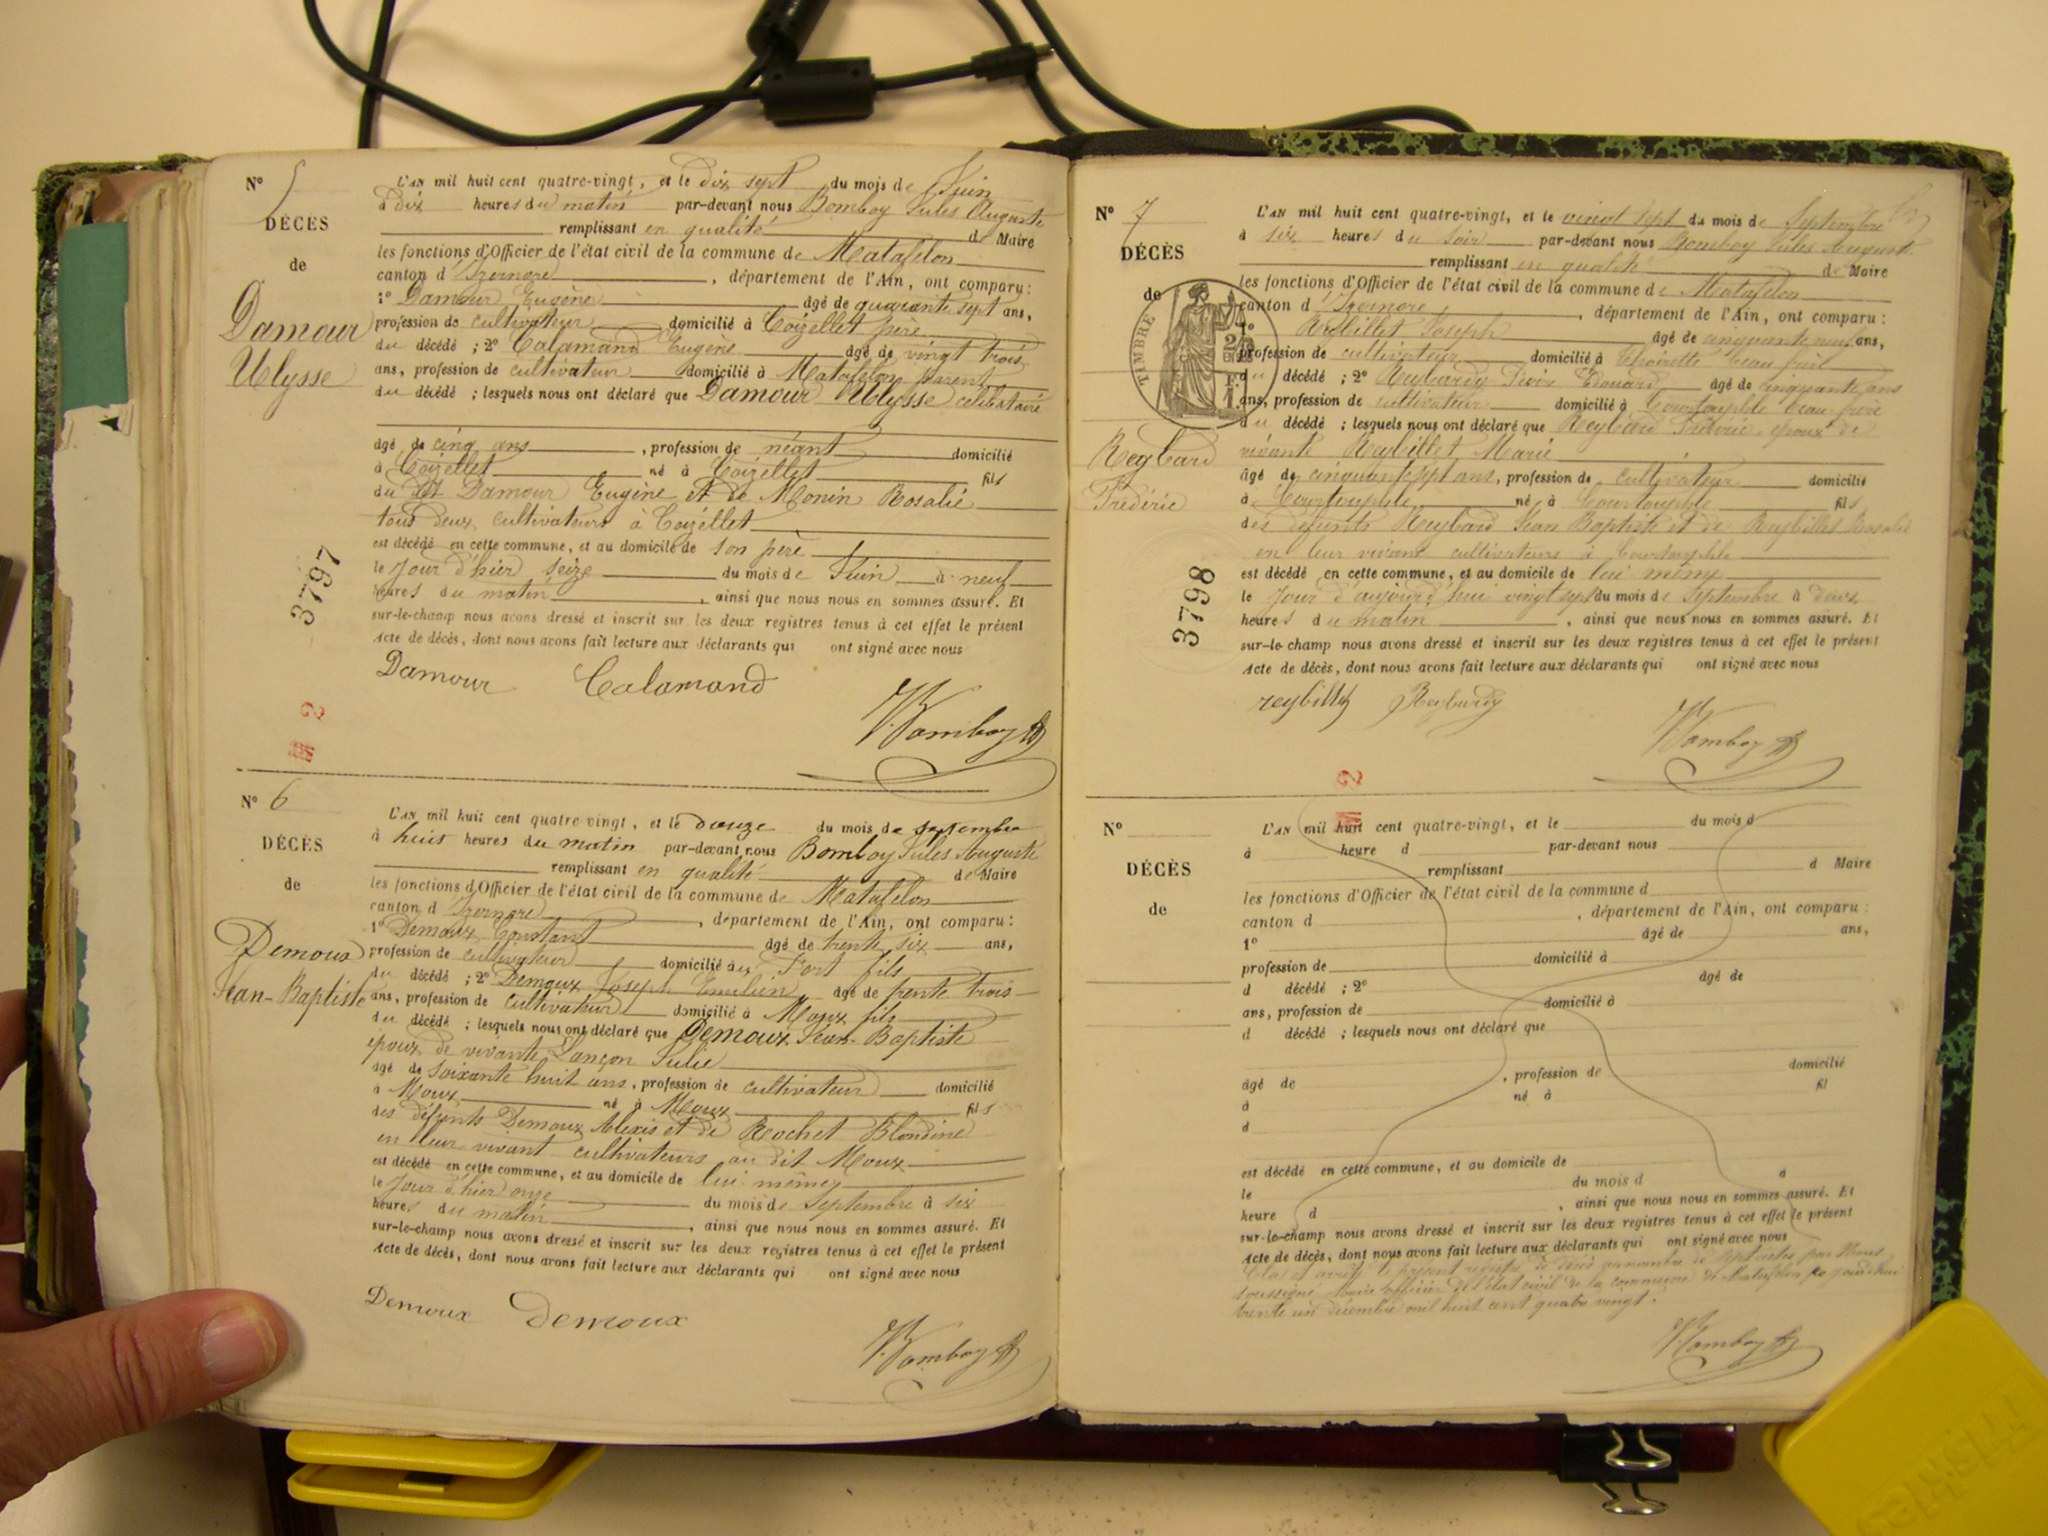 N° 5
DÉCÈS
de
Damour
Ulysse
L'AN mil huit cent quatre-vingt, et le dix sept du mois de Juin
à dix heures du matin par-devant nous Bomboy Jules Auguste
remplissant en qualité de Maire
les fonctions d'Officier de l'état civil de la commune de Matafelon
canton d'Izernore, département de l'Ain, ont comparu:
1° Damour Eugène âgé de quarante sept ans,
profession de cultivateur domicilié à Coizellet père
du décédé ; 2° Calamand Eugène âgé de vingt trois
ans, profession de cultivateur domicilié à Matafelon parent
du décédé ; lesquels nous ont déclaré que Damour Ulysse célibataire
âgé de cinq ans, profession de néant domicilié
à Coizellet né à Coizellet fils
du dit Damour Eugène et de Monin Rosalie
tous deux cultivateurs à Coizellet
est décédé en cette commune, et au domicile de son père
le jour d'hier seize du mois de Juin à neuf
heures du matin, ainsi que nous nous en sommes assuré. Et
sur-le-champ nous avons dressé et inscrit sur les deux registres tenus à cet effet le présent
Acte de décès, dont nous avons fait lecture aux déclarants qui ont signé avec nous
Damour Calamand
Bomboy
3797
2
N° 6
DÉCÈS
de
Demoux
Jean-Baptiste
L'AN mil huit cent quatre-vingt, et le douze du mois de septembre
à huit heures du matin par-devant nous Bomboy Jules Auguste
remplissant en qualité de Maire
les fonctions d'Officier de l'état civil de la commune de Matafelon
canton d'Izernore, département de l'Ain, ont comparu:
1° Demoux Constant âgé de trente six ans,
profession de cultivateur domicilié au Port fils
du décédé ; 2° Demoux Joseph Emilien âgé de trente trois
ans, profession de cultivateur domicilié à Moux fils
du décédé ; lesquels nous ont déclaré que Demoux Jean-Baptiste
époux de vivante Lançon Julie
âgé de soixante huit ans, profession de cultivateur domicilié
à Moux né à Moux fils
des défunts Demoux Alexis et de Rochet Blondine
en leur vivant cultivateurs au dit Moux
est décédé en cette commune, et au domicile de lui même
le jour d'hier onze du mois de Septembre à six
heures du matin, ainsi que nous nous en sommes assuré. Et
sur-le-champ nous avons dressé et inscrit sur les deux registres tenus à cet effet le présent
Acte de décès, dont nous avons fait lecture aux déclarants qui ont signé avec nous
Demoux Demoux
Bomboy
N° 7
DÉCÈS
de
TIMBRE
Reybard
Frédéric
L'AN mil huit cent quatre-vingt, et le vingt sept du mois de Septembre
à six heures du soir par-devant nous Bomboy Jules Auguste
remplissant en qualité de Maire
les fonctions d'Officier de l'état civil de la commune de Matafelon
canton d'Izernore, département de l'Ain, ont comparu:
1° Reybillet Joseph âgé de cinquante neuf ans,
profession de cultivateur domicilié à beau frère
du décédé ; 2° Reybard Edouard âgé de cinquante ans
ans, profession de cultivateur domicilié à Courtouphle beau frère
du décédé ; lesquels nous ont déclaré que Reybard Frédéric époux de
vivante Reybillet Marie
âgé de cinquante sept ans, profession de cultivateur domicilié
à Courtouphle né à Courtouphle fils
des défunts Reybard Jean Baptiste et de Reybillet Rosalie
en leur vivant cultivateurs à Courtouphle
est décédé en cette commune, et au domicile de lui même
le jour d'aujourd'hui vingt sept du mois de Septembre à deux
heures du matin, ainsi que nous nous en sommes assuré. Et
sur-le-champ nous avons dressé et inscrit sur les deux registres tenus à cet effet le présent
Acte de décès, dont nous avons fait lecture aux déclarants qui ont signé avec nous
reybillet Reybard
Bomboy
3798
2
N°
DÉCÈS
de
L'AN mil huit cent quatre-vingt, et le du mois d
à heure d par-devant nous
remplissant d Maire
les fonctions d'Officier de l'état civil de la commune d
canton d, département de l'Ain, ont comparu:
1° âgé de ans,
profession de domicilié à
d décédé ; 2° âgé de
ans, profession de domicilié à
d décédé ; lesquels nous ont déclaré que
âgé de, profession de domicilié
à né à fil
d
est décédé en cette commune, et au domicile de
le du mois d à
heure d, ainsi que nous nous en sommes assuré. Et
sur-le-champ nous avons dressé et inscrit sur les deux registres tenus à cet effet le présent
Acte de décès, dont nous avons fait lecture aux déclarants qui ont signé avec nous
Clos et arrêté le présent registre de décès au nombre de sept actes par Nous
soussigné Maire officier de l'état civil de la commune de Matafelon ce jourd'hui
trente un décembre mil huit cent quatre vingt.
Bomboy